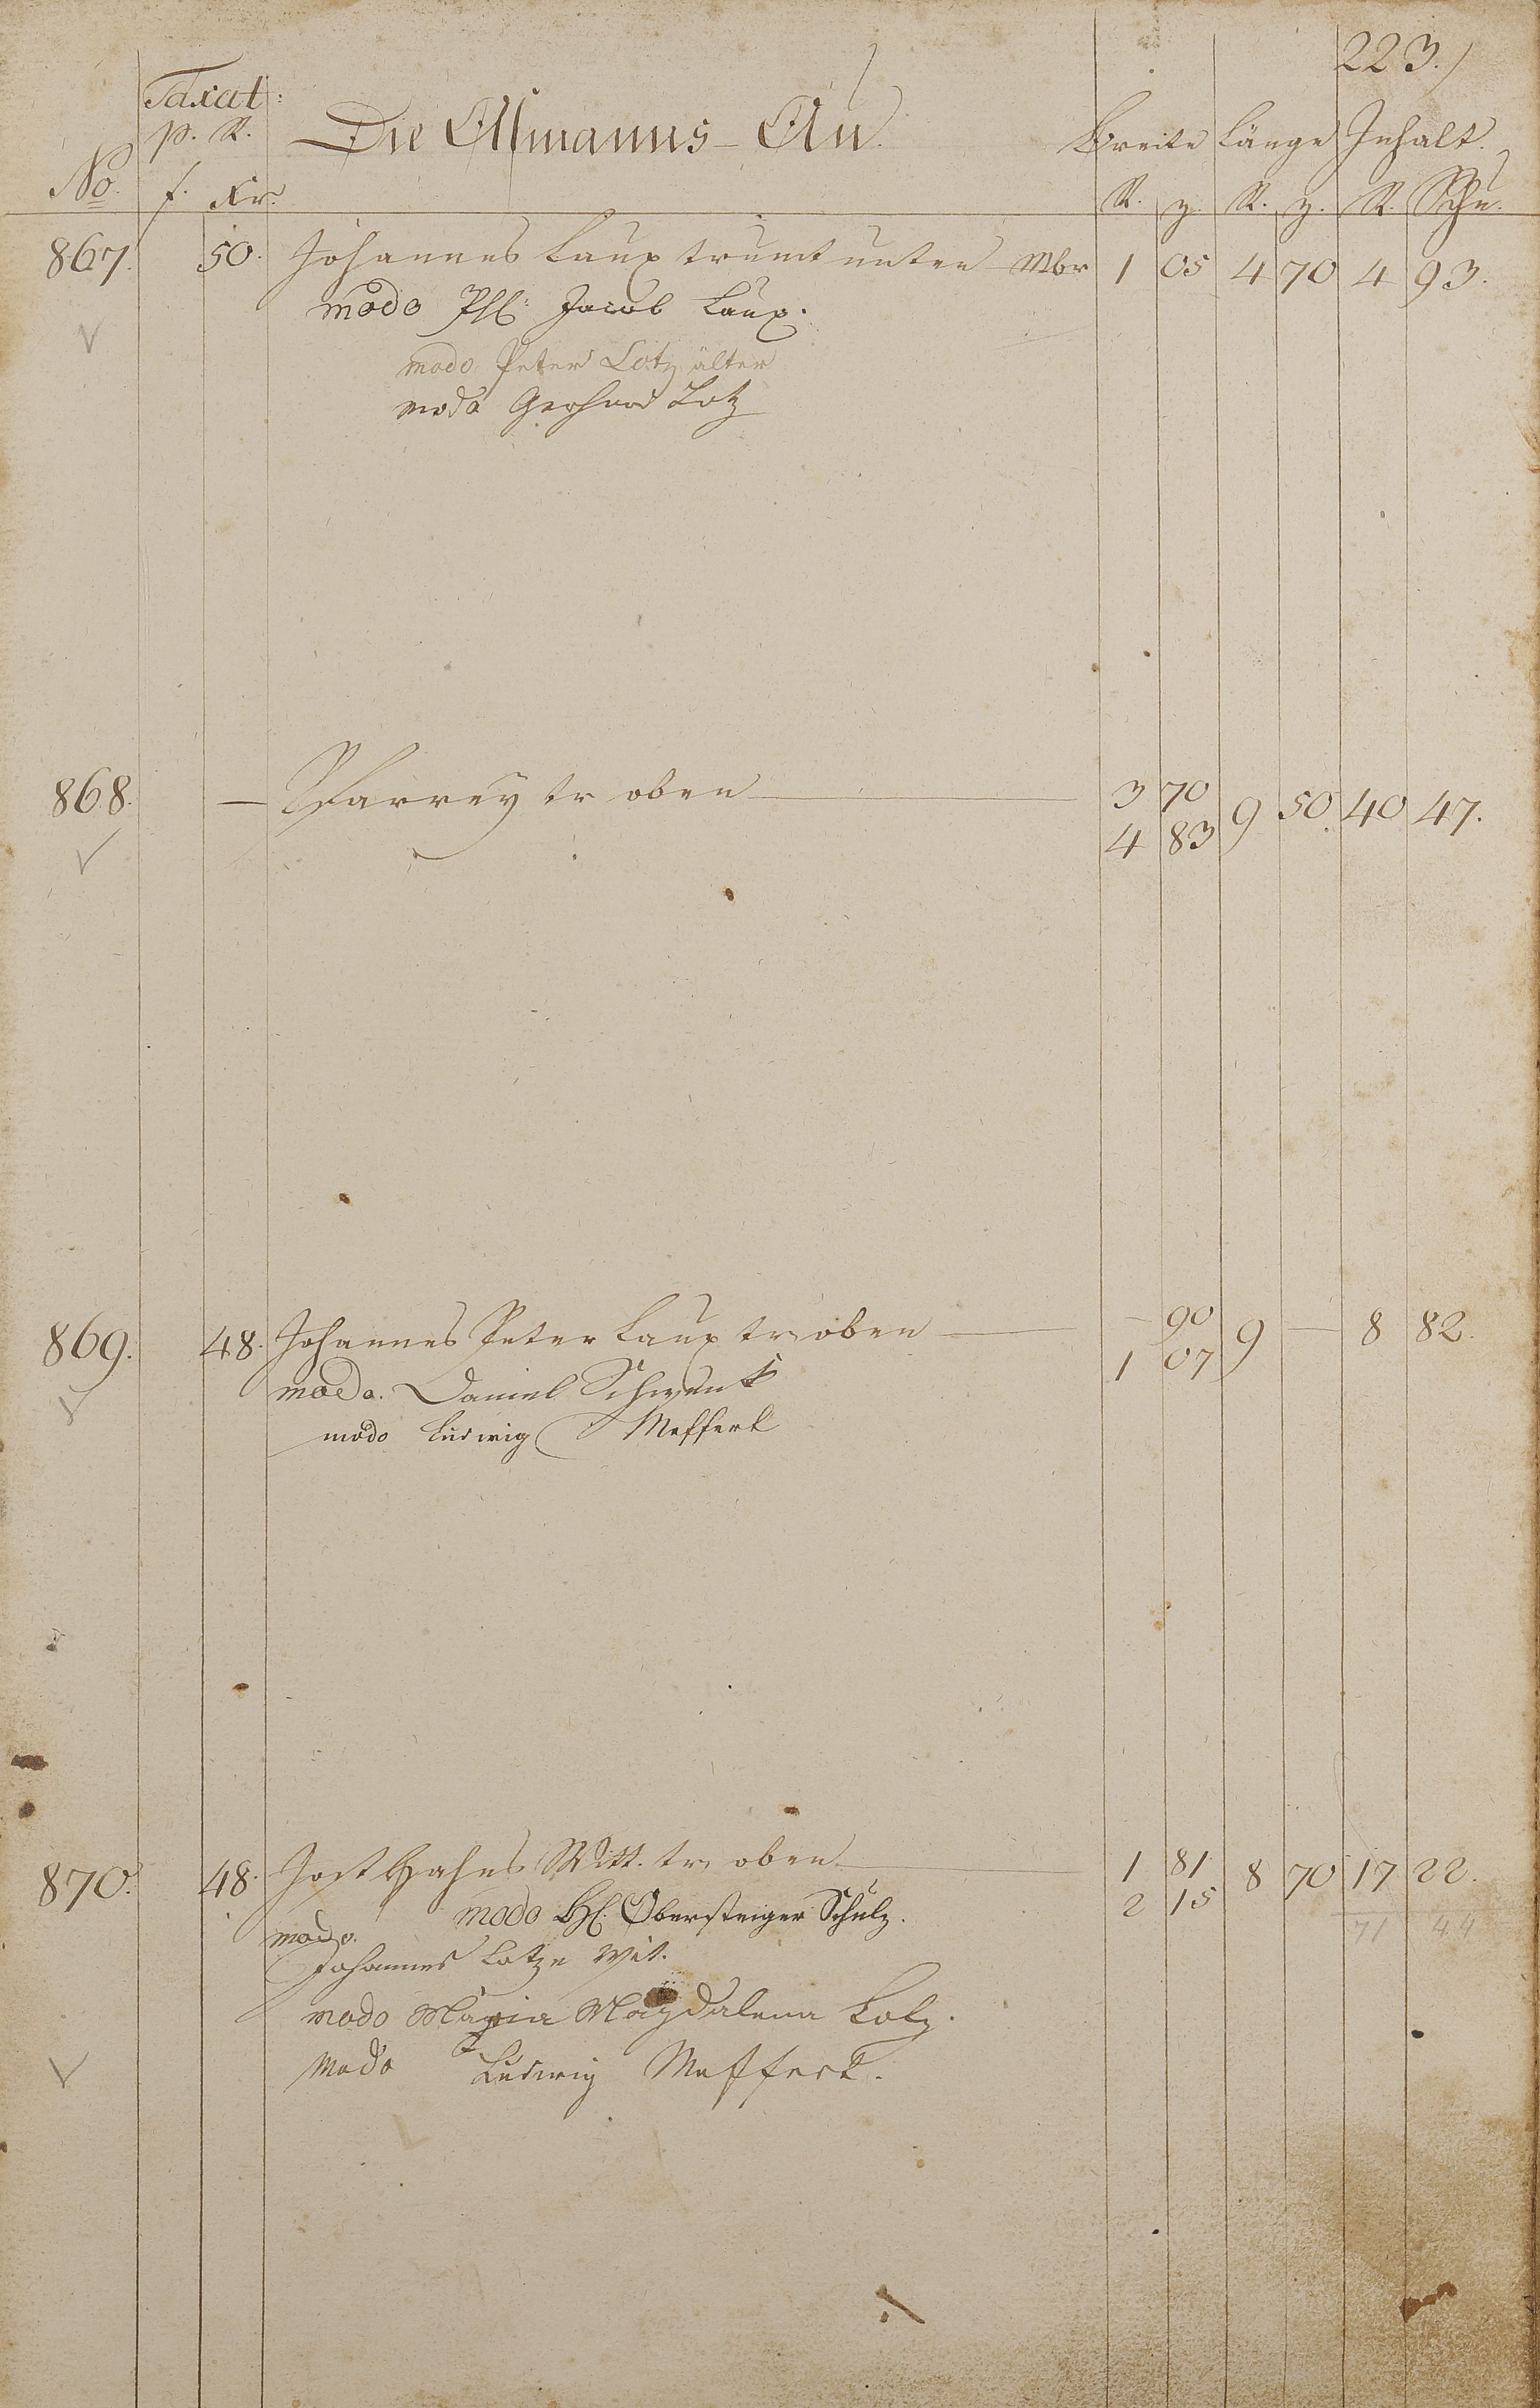 223.)
Taxat:
p. R. Die Allmanns-Au. Breite Länge Inhalt.
No. f. Xr. R. z. R. z. R. Schu.
867. 50. Johannes Laux trumt unten Mbr 1 05 4 70 4 93.
modo Phl: Jacob Laux.
modo Peter Lotz älter
modo Gerhard Lotz
868. — Pfarrey tr oben 3 70 9 50 40 47.
4 83
869. 48. Johannes Peter Laux tr. oben — 90 9 — 8 82.
1 07
modo. Daniel Schwenk
modo Ludwig Meffert
870. 48. Jost Hahns Witt. tr. oben 1 81 8 70 17 22.
2 15
modo H. Obersteiger Schulz.
71 44
modo.
Johannes Lotze Wit.
modo Maria Magdalena Lotz.
modo Ludwig Meffert.